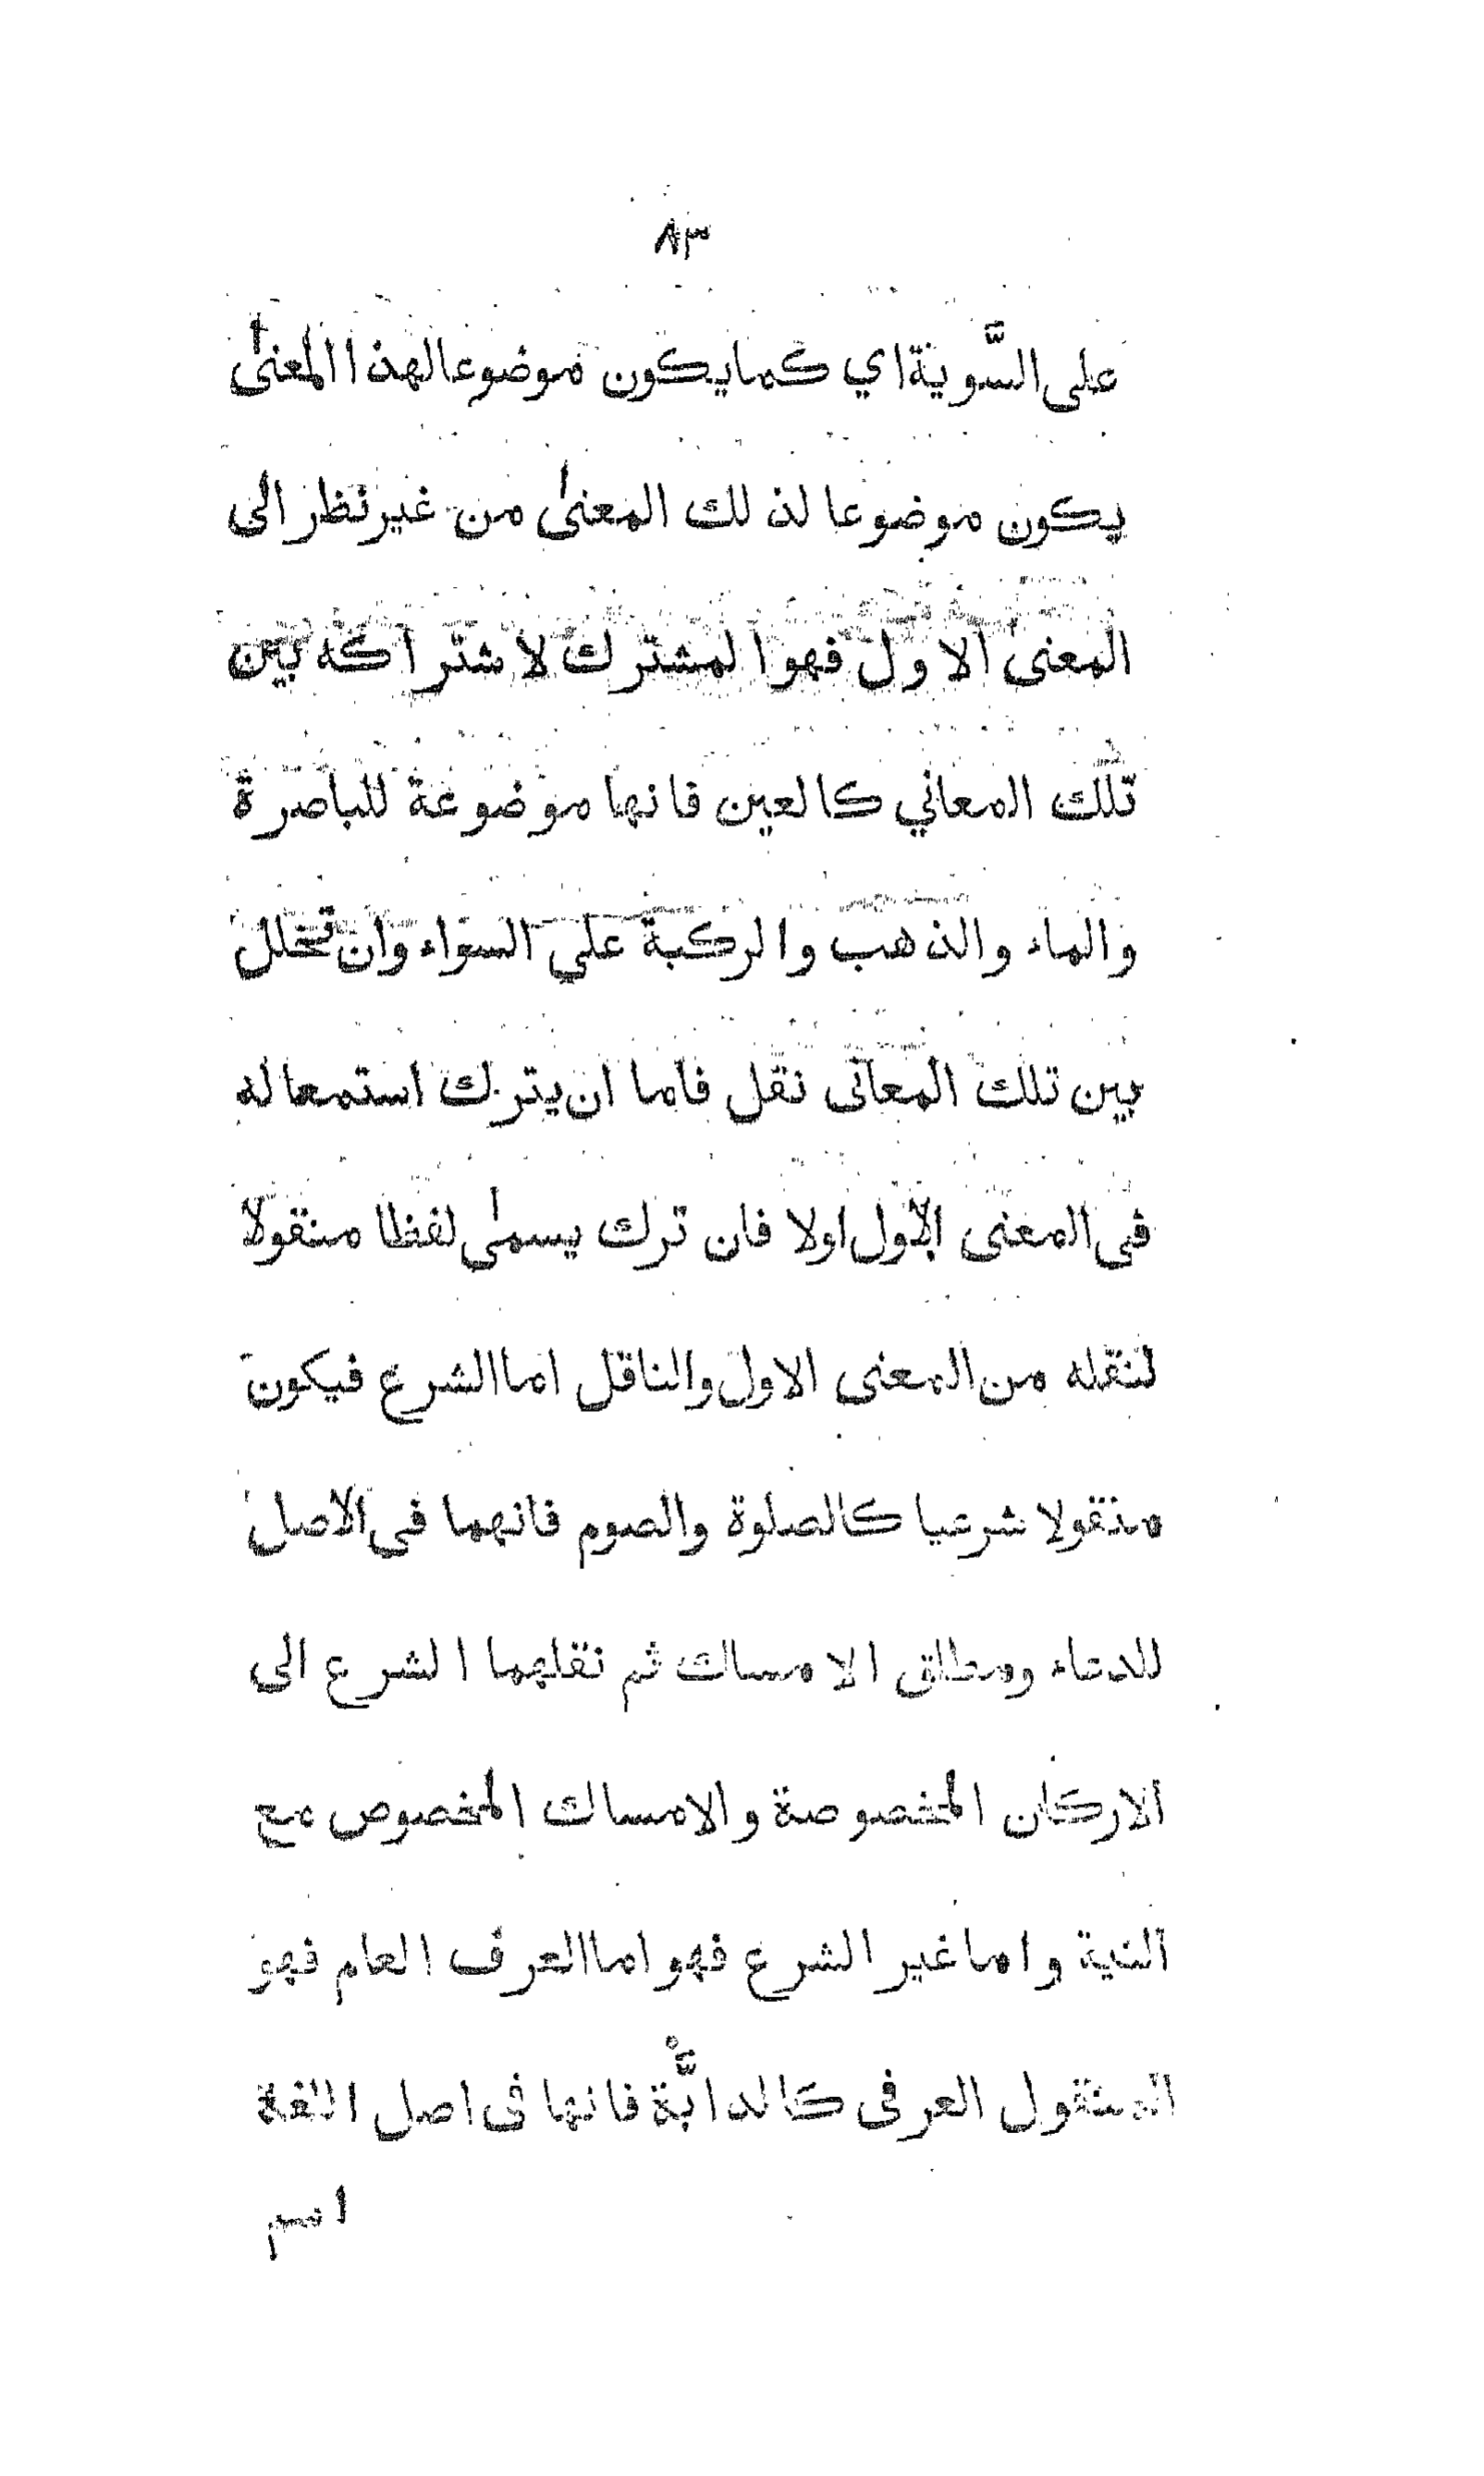 ٨٣
على السَّوية اي كما يكون موضوعا لهذا المعنىٰ
يكون موضوعا لذلك المعنىٰ من غير نظر الى
المعنى الاول فهو المشترك لاشتراكه بين
تلك المعاني كالعين فانها موضوعة للباصرة
والماء والذهب والركبة على السواء وان تخلل
بين تلك المعانى نقل فاما ان يترك استمعاله
فى المعنى الاول اولا فان ترك يسمىٰ لفظا منقولا
لنقله من المعنى الاول والناقل اما الشرع فيكون
منقولا شرعيا كالصلوة والصوم فانهما فى الاصل
للدعاء ومطلق الامساك ثم نقلهما الشرع الى
الاركان المخصوصة والامساك المخصوص مع
النية واما غير الشرع فهو اما العرف العام فهو
المنقول العرفى كالدابَّة فانها فى اصل اللغة
اسم